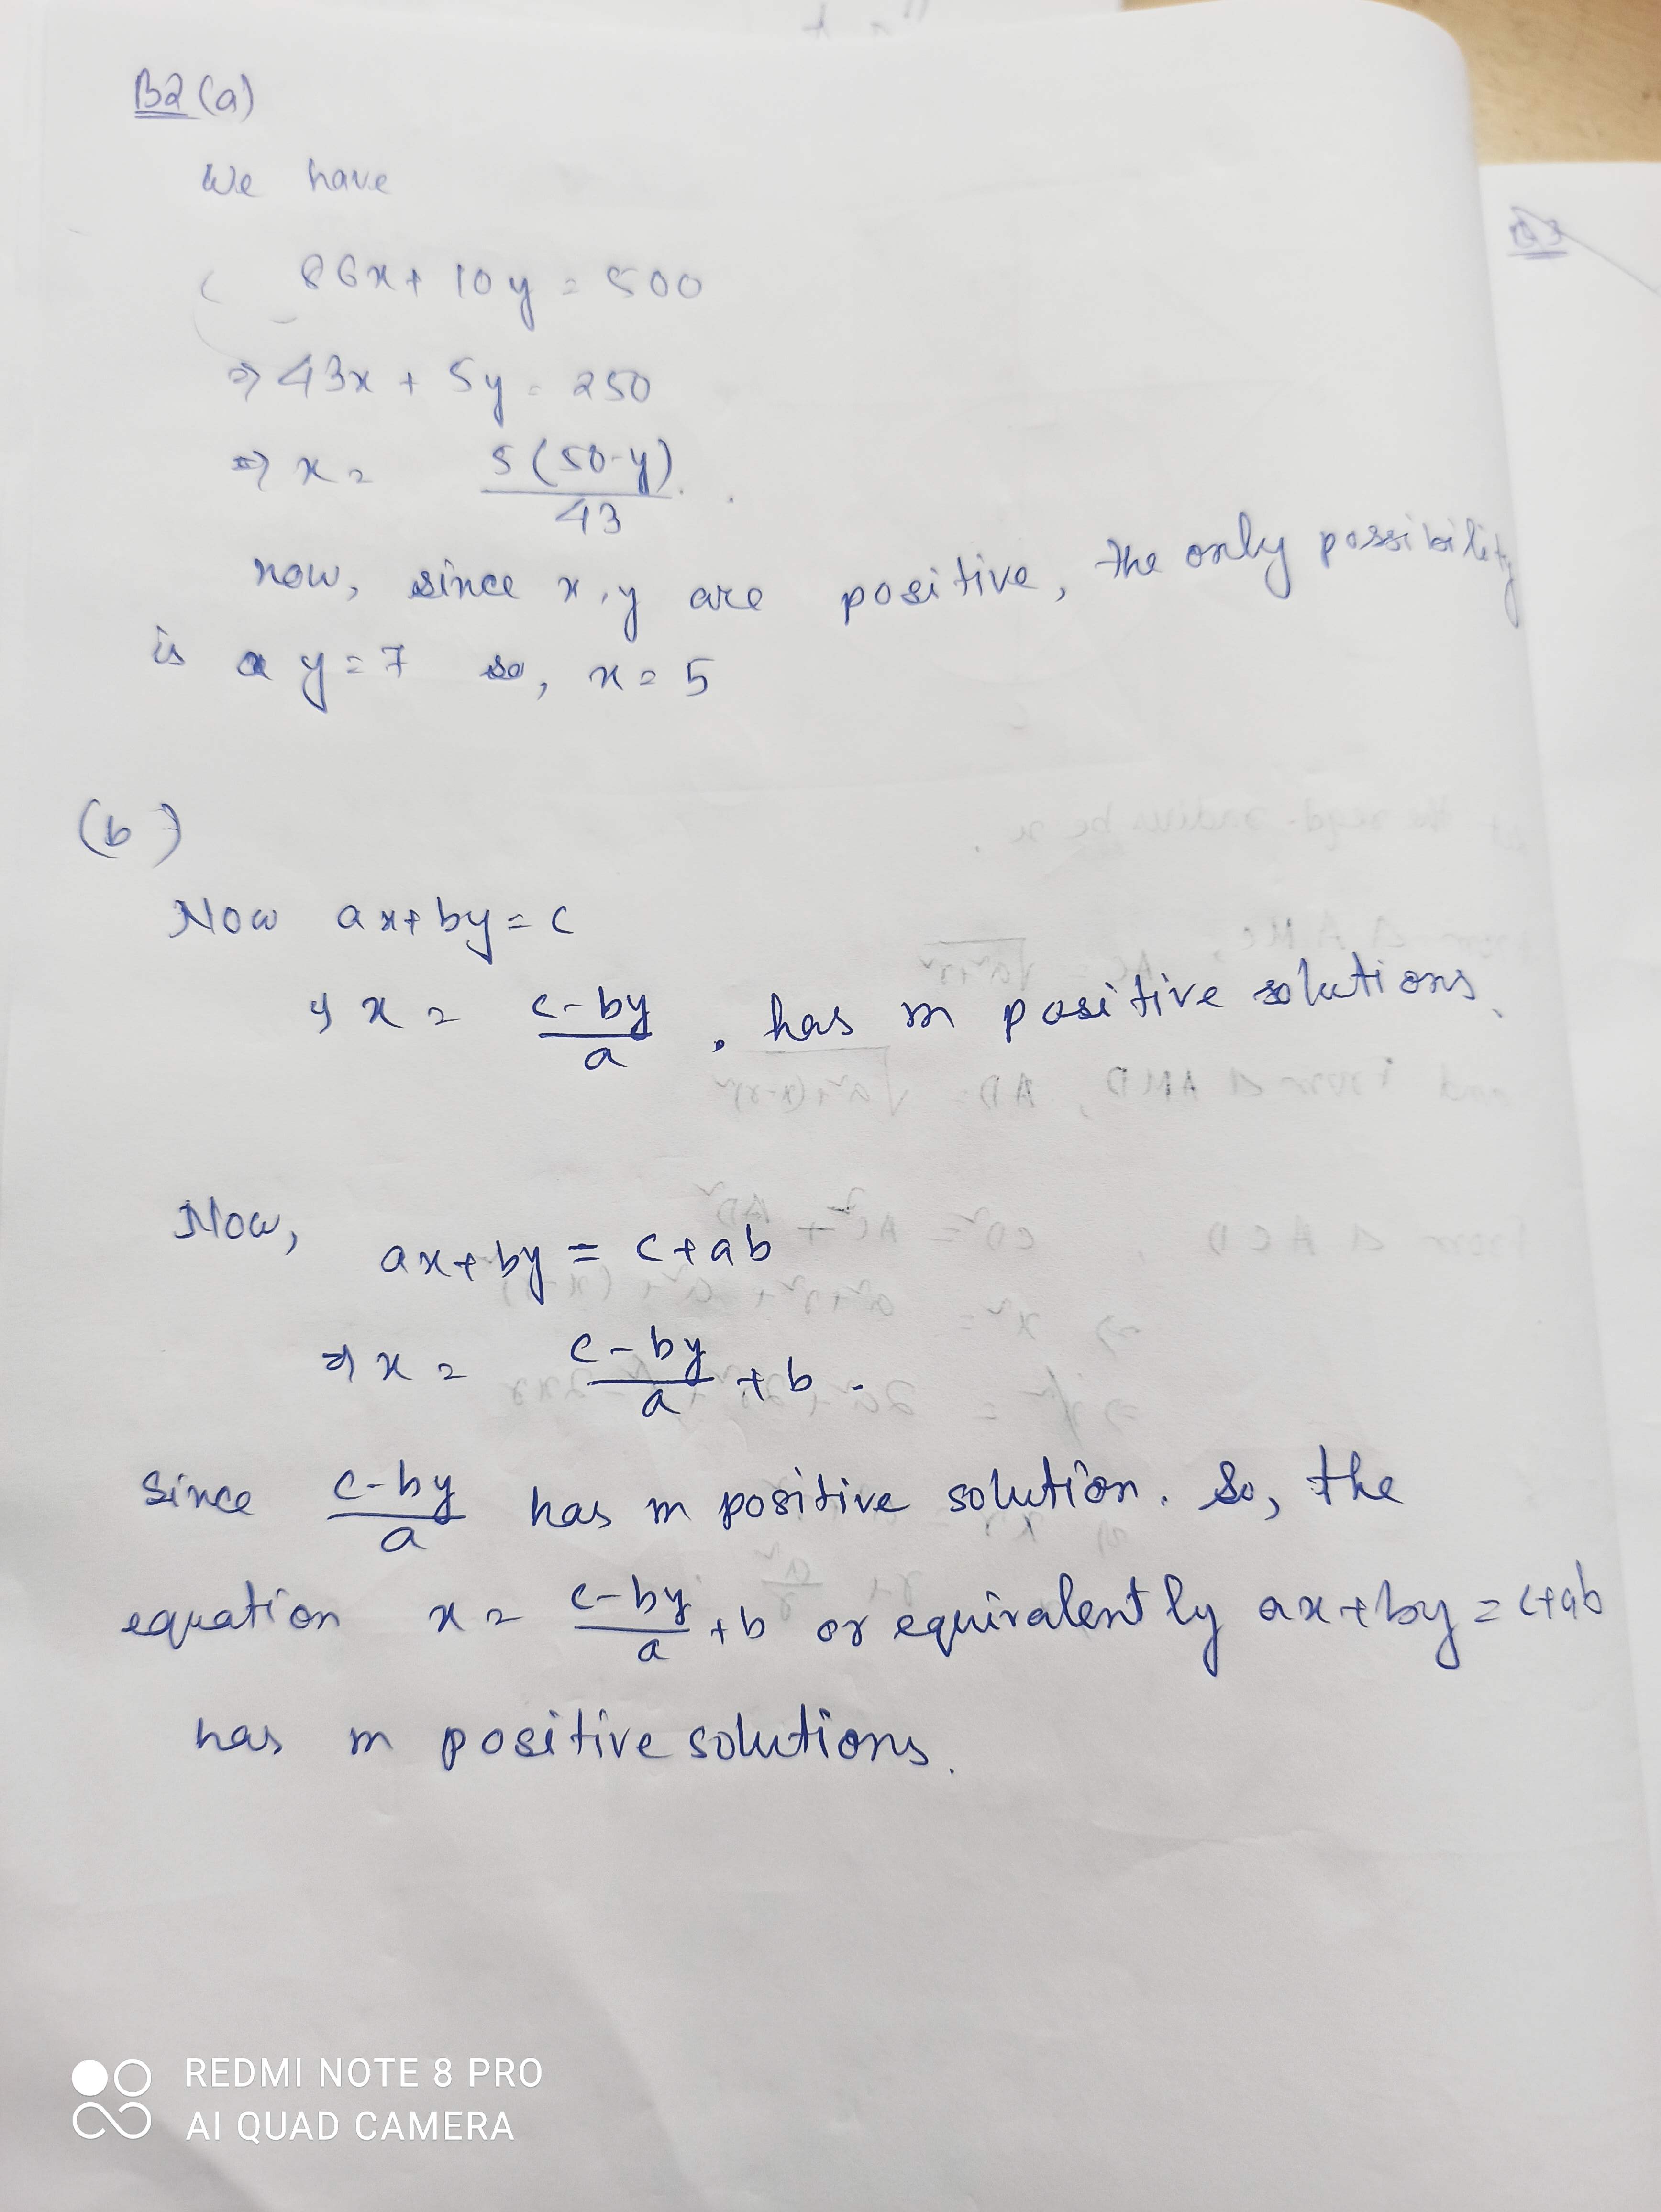 B2(a)
We have
86x + 10y = 500
⇒ 43x + 5y = 250
⇒ x = 5(50-y)/43 .
now, since x, y are positive, the only possibility
is y = 7 so, x = 5
(b)
Now ax+by = c
x = (c-by)/a . has m positive solutions.
Now,
ax+by = c+ab
⇒ x = (c-by)/a + b .
Since (c-by)/a has m positive solution. So, the
equation x = (c-by)/a + b or equivalently ax+by = c+ab
has m positive solutions.
REDMI NOTE 8 PRO
AI QUAD CAMERA